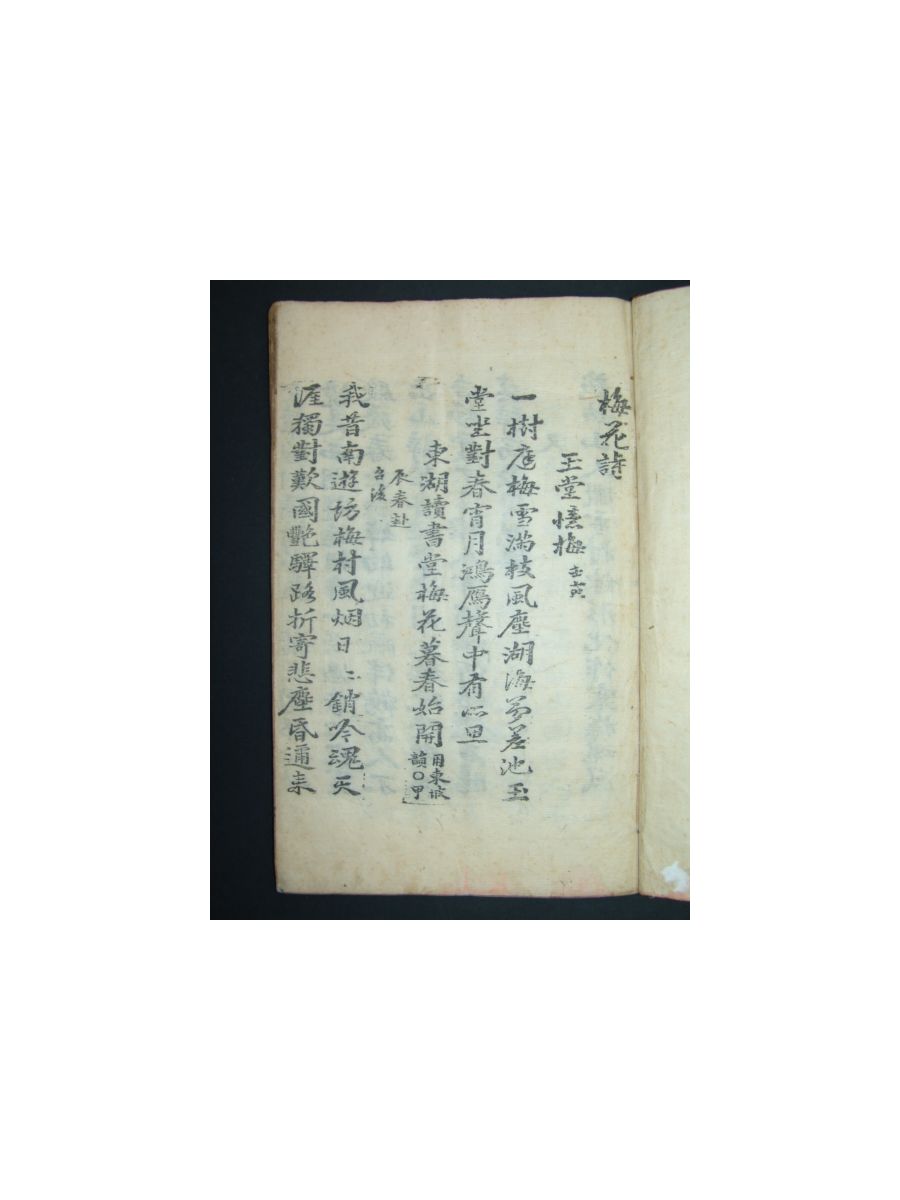 梅花詩
玉堂憶梅 壬寅
一樹庭梅雪滿枝風塵湖海夢差池玉
堂坐對春宵月鴻鴈聲中有所思
東湖讀書堂梅花暮春始開 用東坡
韻○甲
辰春赴
召後
我昔南遊訪梅村風烟日〻銷吟魂天
涯獨對歎國艶驛路折寄悲塵昏邇來